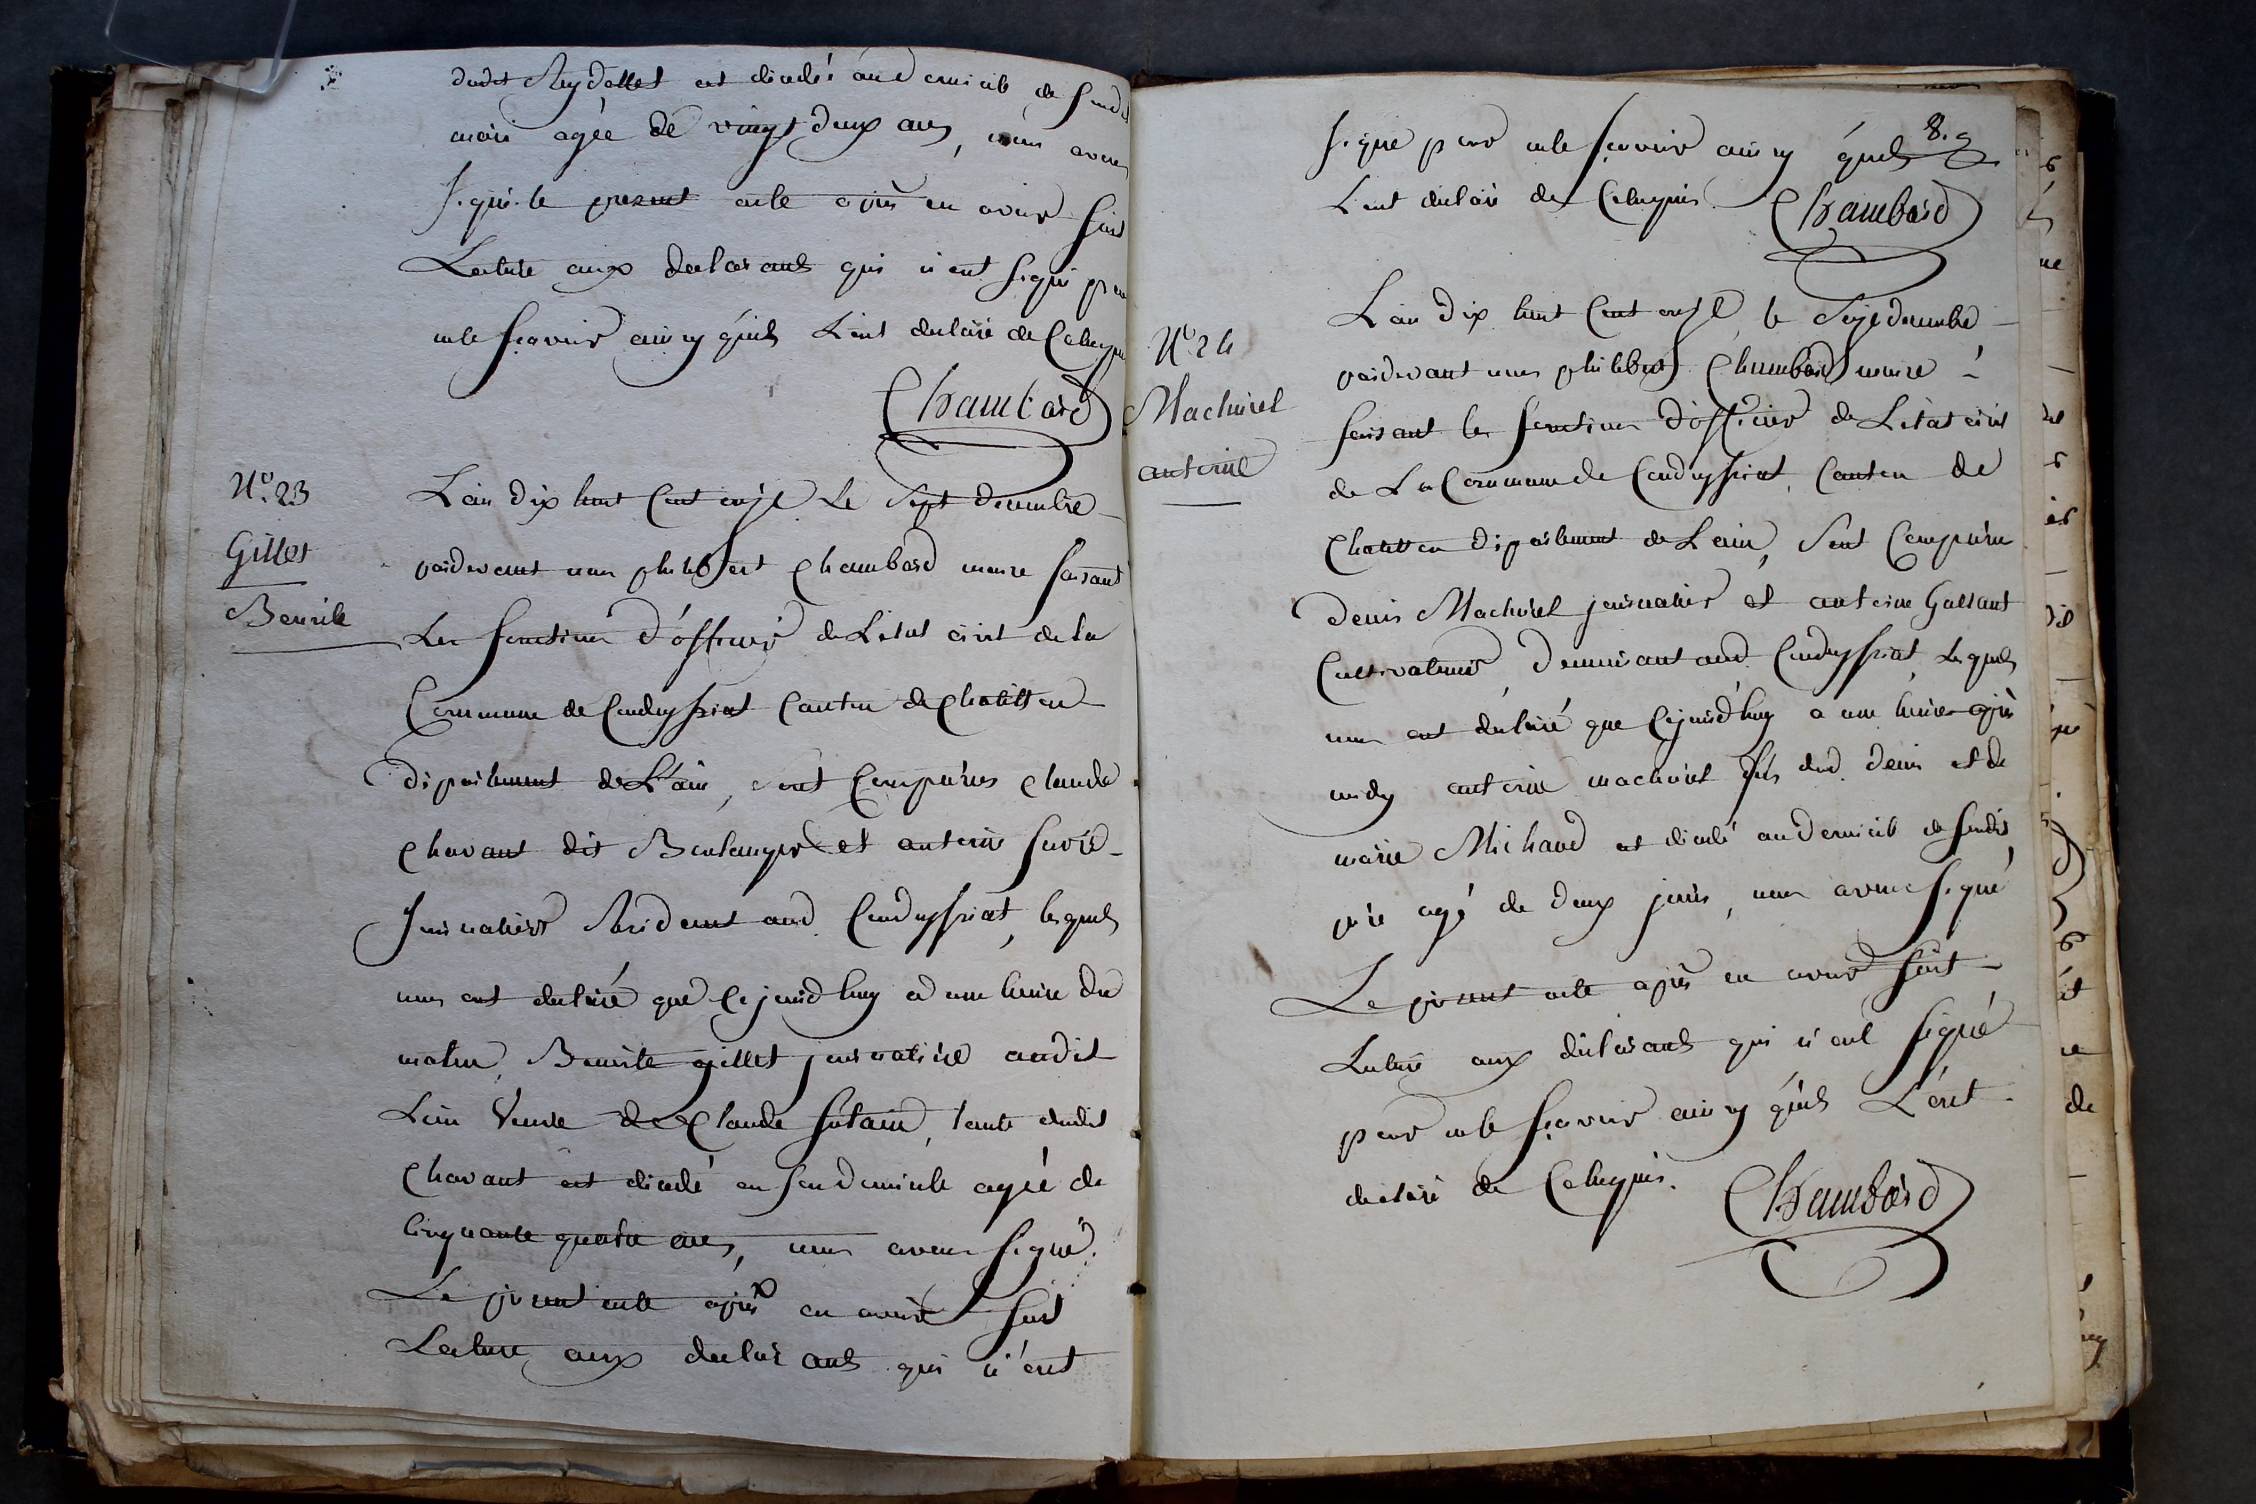 dudit Reydellet est décédé aud domicile de sond
mari agée de vingt deux ans, nous avons
signé le present acte après en avoir fait
Lecture aux declarants qui n'ont signé pour
ne le sçavoir ainsy qu'ils L'ont declaré de Ce requis
Chambard
N°. 23
Gillet
Benoite
L'an dix huit Cent onze Le Sept decembre
pardevant nous philibert Chambard maire faisant
Les fonctions d'officier de L'etat civil de la
Commune de Condeyssiat Canton de Chatillon
département de L'ain, sont Comparus Claude
Chavant dit Boulanger et antoine
Journaliers Résidant aud. Condeyssiat, lesquels
nous ont declaré que Cejourd'huy a une heure du
matin, Benoite gillet journalière audit
Lieu Veuve de Claude, tante dudit
Chavant est décédé en son domicile agée de
Cinquante quatre ans, nous avons signé
Le present acte après en avoir fait
Lecture aux declarants qui n'ont
8.
signé pour ne le sçavoir ainsy qu'ils
L'ont declaré de Ce requis. Chambard
N°. 24
Machurel
antoine
L'an dix huit Cent onze, le Seize decembre
pardevant nous philibert Chambard maire
faisant les fonctions d'officier de L'etat civil
de La Commune de Condeyssiat, Canton de
Chatillon département de L'ain, Sont Comparus
Denis Machurel journalier et antoine Gallant
Cultivateur, demeurant aud. Condeyssiat, lesquels
nous ont declaré que Cejourd'huy a une heure après
midy antoine machurel fils dud. Denis et de
marie Michaud est décédé au domicile de sondit
père agé de deux jours, nous avons signé
Le present acte après en avoir fait
Lecture aux déclarants qui n'ont signé
pour ne le sçavoir ainsy qu'ils L'ont
declaré de Ce requis. Chambard